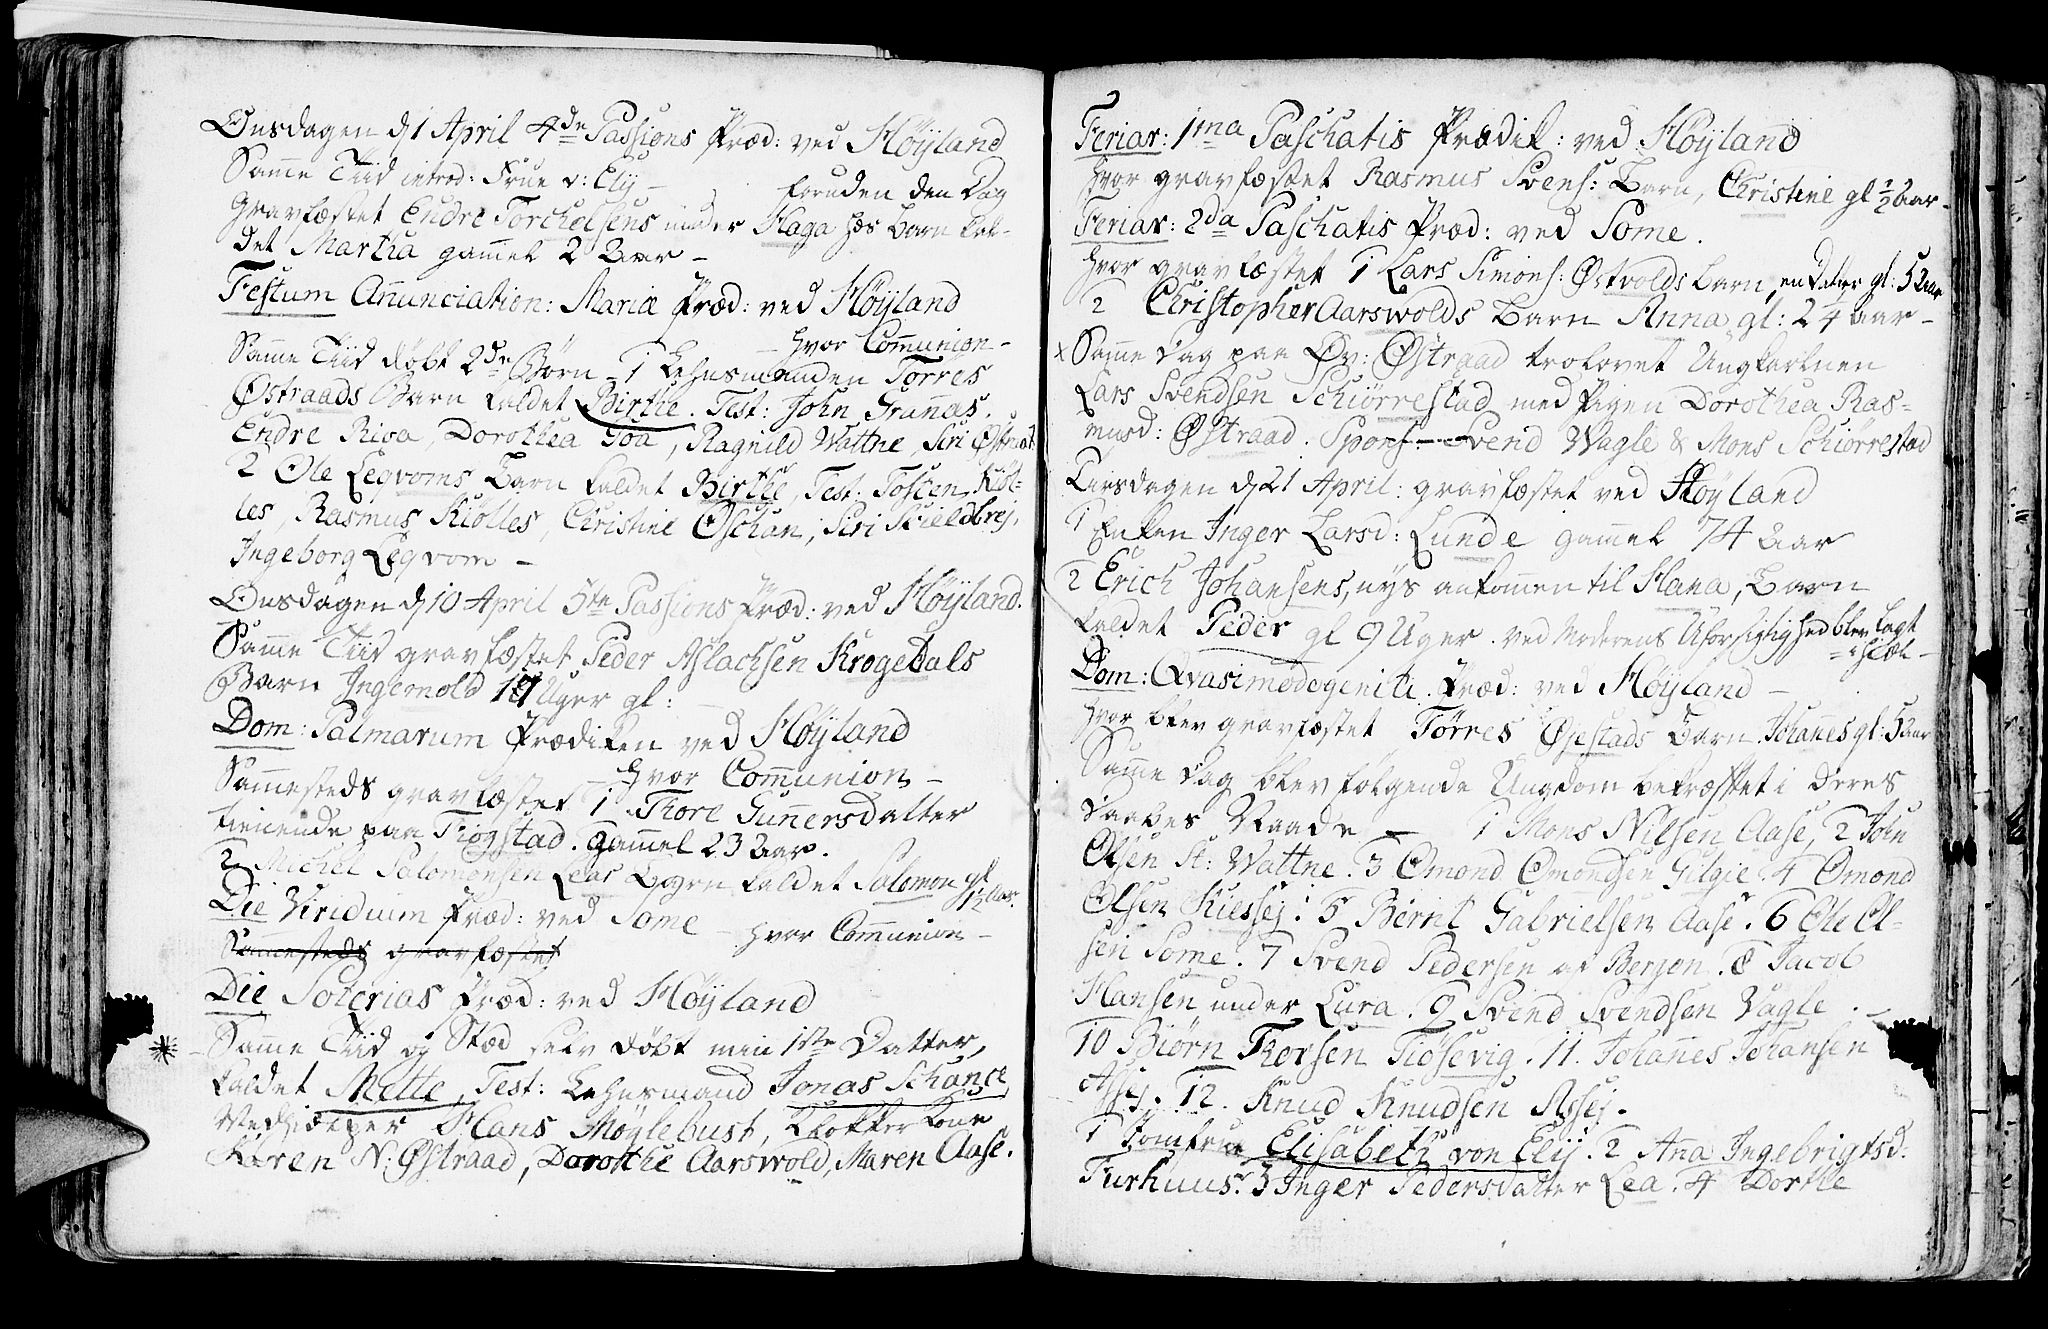 Onsdagen d 1 April 4de Passions Præd: ved Höyland
Samme Tiid introd: Frue v: Elÿ –
foruden den Dag
Gravfæstet Endre Torchelsens under Haga hs Barn kal-
det Martha gammel 2 Aar –
Festum Anunciation: Mariæ Præd: ved Höyland
– hvor Communion –
Samme Tiid døbt 2de Børn – 1 Lehnsmanden Torres
Østraads Barn kaldet Birthe. Test: John Grannas.
Endre Riva, Dorothea Goa, Ragnild Wattne, Siri Østraat
2 Ole Leqvoms Barn kaldet Birthe, Test: Tosten Kiöl-
les, Rasmus Kiölles, Christine Oschan, Siri Skieldbrej,
Ingeborg Leqvom –
Onsdagen d 10 April 5te Passions Præd: ved Höyland.
Samme Tiid gravfæstet Peder Aslachsen Krogedals
Barn Ingemold 19 Uger gl:
Dom: Palmarum Prædiken ved Höyland
– hvor Communion –
Sammesteds gravfæstet 1 Thore Gunnersdatter
tienende paa Trogstad. gammel 23 Aar.
2 Michel Salomonsen Leas Barn kaldet Salomon gl
1/2 Aar.
Die Viridium Præd: ved Some – hvor Communion –
Sammesteds gravfæstet
Die Soterias Præd: ved Höyland
* – Samme Tiid og Stæd selv døbt min 1ste Datter,
kaldet Mette, Test: Lehnsmand Jonas Schanche
Medhielper Hans Möglebust, Klokker Kone
Karen N: Østraad, Dorothe Aarswold, Maren Aase.
Feriar: 1ma Paschatis Prædik: ved Höyland
hvor gravfæstet Rasmus Svens: Barn, Christine gl 1/2 Aar –
Feriar: 2da Paschatis Præd: ved Some.
hvor gravfæstet 1 Lars Simons: Østvolds Barn, en Datter gl: 5 Aar
2 Christopher Aarswolds Barn Anna gl: 24 Aar –
x Samme Dag paa Øv: Østraad trolovet Ungkarlnen
Lars Svendsen Schiörrestad med Pigen Dorothea Ras-
musd: Østraad. Spons – Svend Wagle & Mons Schiörrestad
Tirsdagen d 21 April: gravfæstet ved Höyland
1 Enken Inger Larsd: Lunde gammel 74 Aar
2 Erich Johansens, nys ankommen til Hana, Barn
kaldet Peder gl 9 Uger. ved Moderens Uforsigtighed blev lagt
– ihiæl –
Dom: Qvasimodogeniti. Præd: ved Höyland –
hvor blev gravfæstet Törres Øjestads Barn. Johanes gl: 5 Aar
Samme Dag blev følgende Ungdom bekræftet i deres
Daabes Naade – 1 Mons Nilsen Aase, 2 John
Olsen St: Wattne. 3 Omond Omondsen Gilgie. 4 Omond
Olsen Kiessej. 5 Bernt Gabrielsen Aase. 6 Ole Ol-
sen Some. 7 Svend Pedersen af Bergen. 8 Jacob
Hansen under Lura. 9 Svend Svendsen Vagle. –
10 Biörn Thorsen Tiösevig. 11. Johannes Johansen
Assej. 12. Knud Knudsen Assej.
1 Jomfrue Elisabeth von Elÿ. 2 Anna Ingebrigtsd.
Furhuus. 3 Inger Pedersdatter Lea. 4 Dorthe